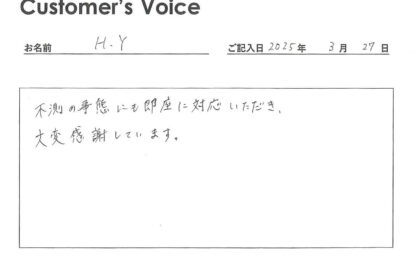 Customer's Voice
お名前 H.Y ご記入日 2025年 3月 27日
不測の事態にも即座に対応いただき、
大変感謝しています。